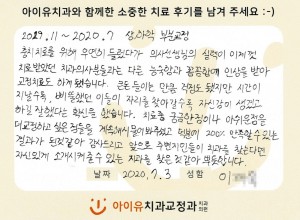 아이유치과와 함께한 소중한 치료 후기를 남겨 주세요 :-)
2019.11 ~ 2020.7 상,하악 부분교정
충치치료를 위해 우연히 들렀다가 의사선생님의 실력이 이제껏
치료받았던 치과의사분들과는 다른 능숙함과 꼼꼼함에 인상을 받아
교정치료도 하게 됐습니다. 큰 돈 들이는 만큼 걱정도 됐지만 시간이
지날수록, 삐뚤했던 이들이 자리를 찾아갈수록 자신감이 생겼고
하길 잘했다는 확신을 했습니다. 치료중 궁금한점이나 아쉬운점을
피교정하고 싶은 점들을 계속해서 물어봐주시고 덕분에 200% 만족할수있는
결과가 된것같아 감사드리고 앞으로 주변지인들이 치과를 찾는다면
자신있게 소개시켜줄수 있는 치과를 찾은것같아 뿌듯합니다.
날짜 2020.7.3 성함 이
아이유치과교정과 치과의원